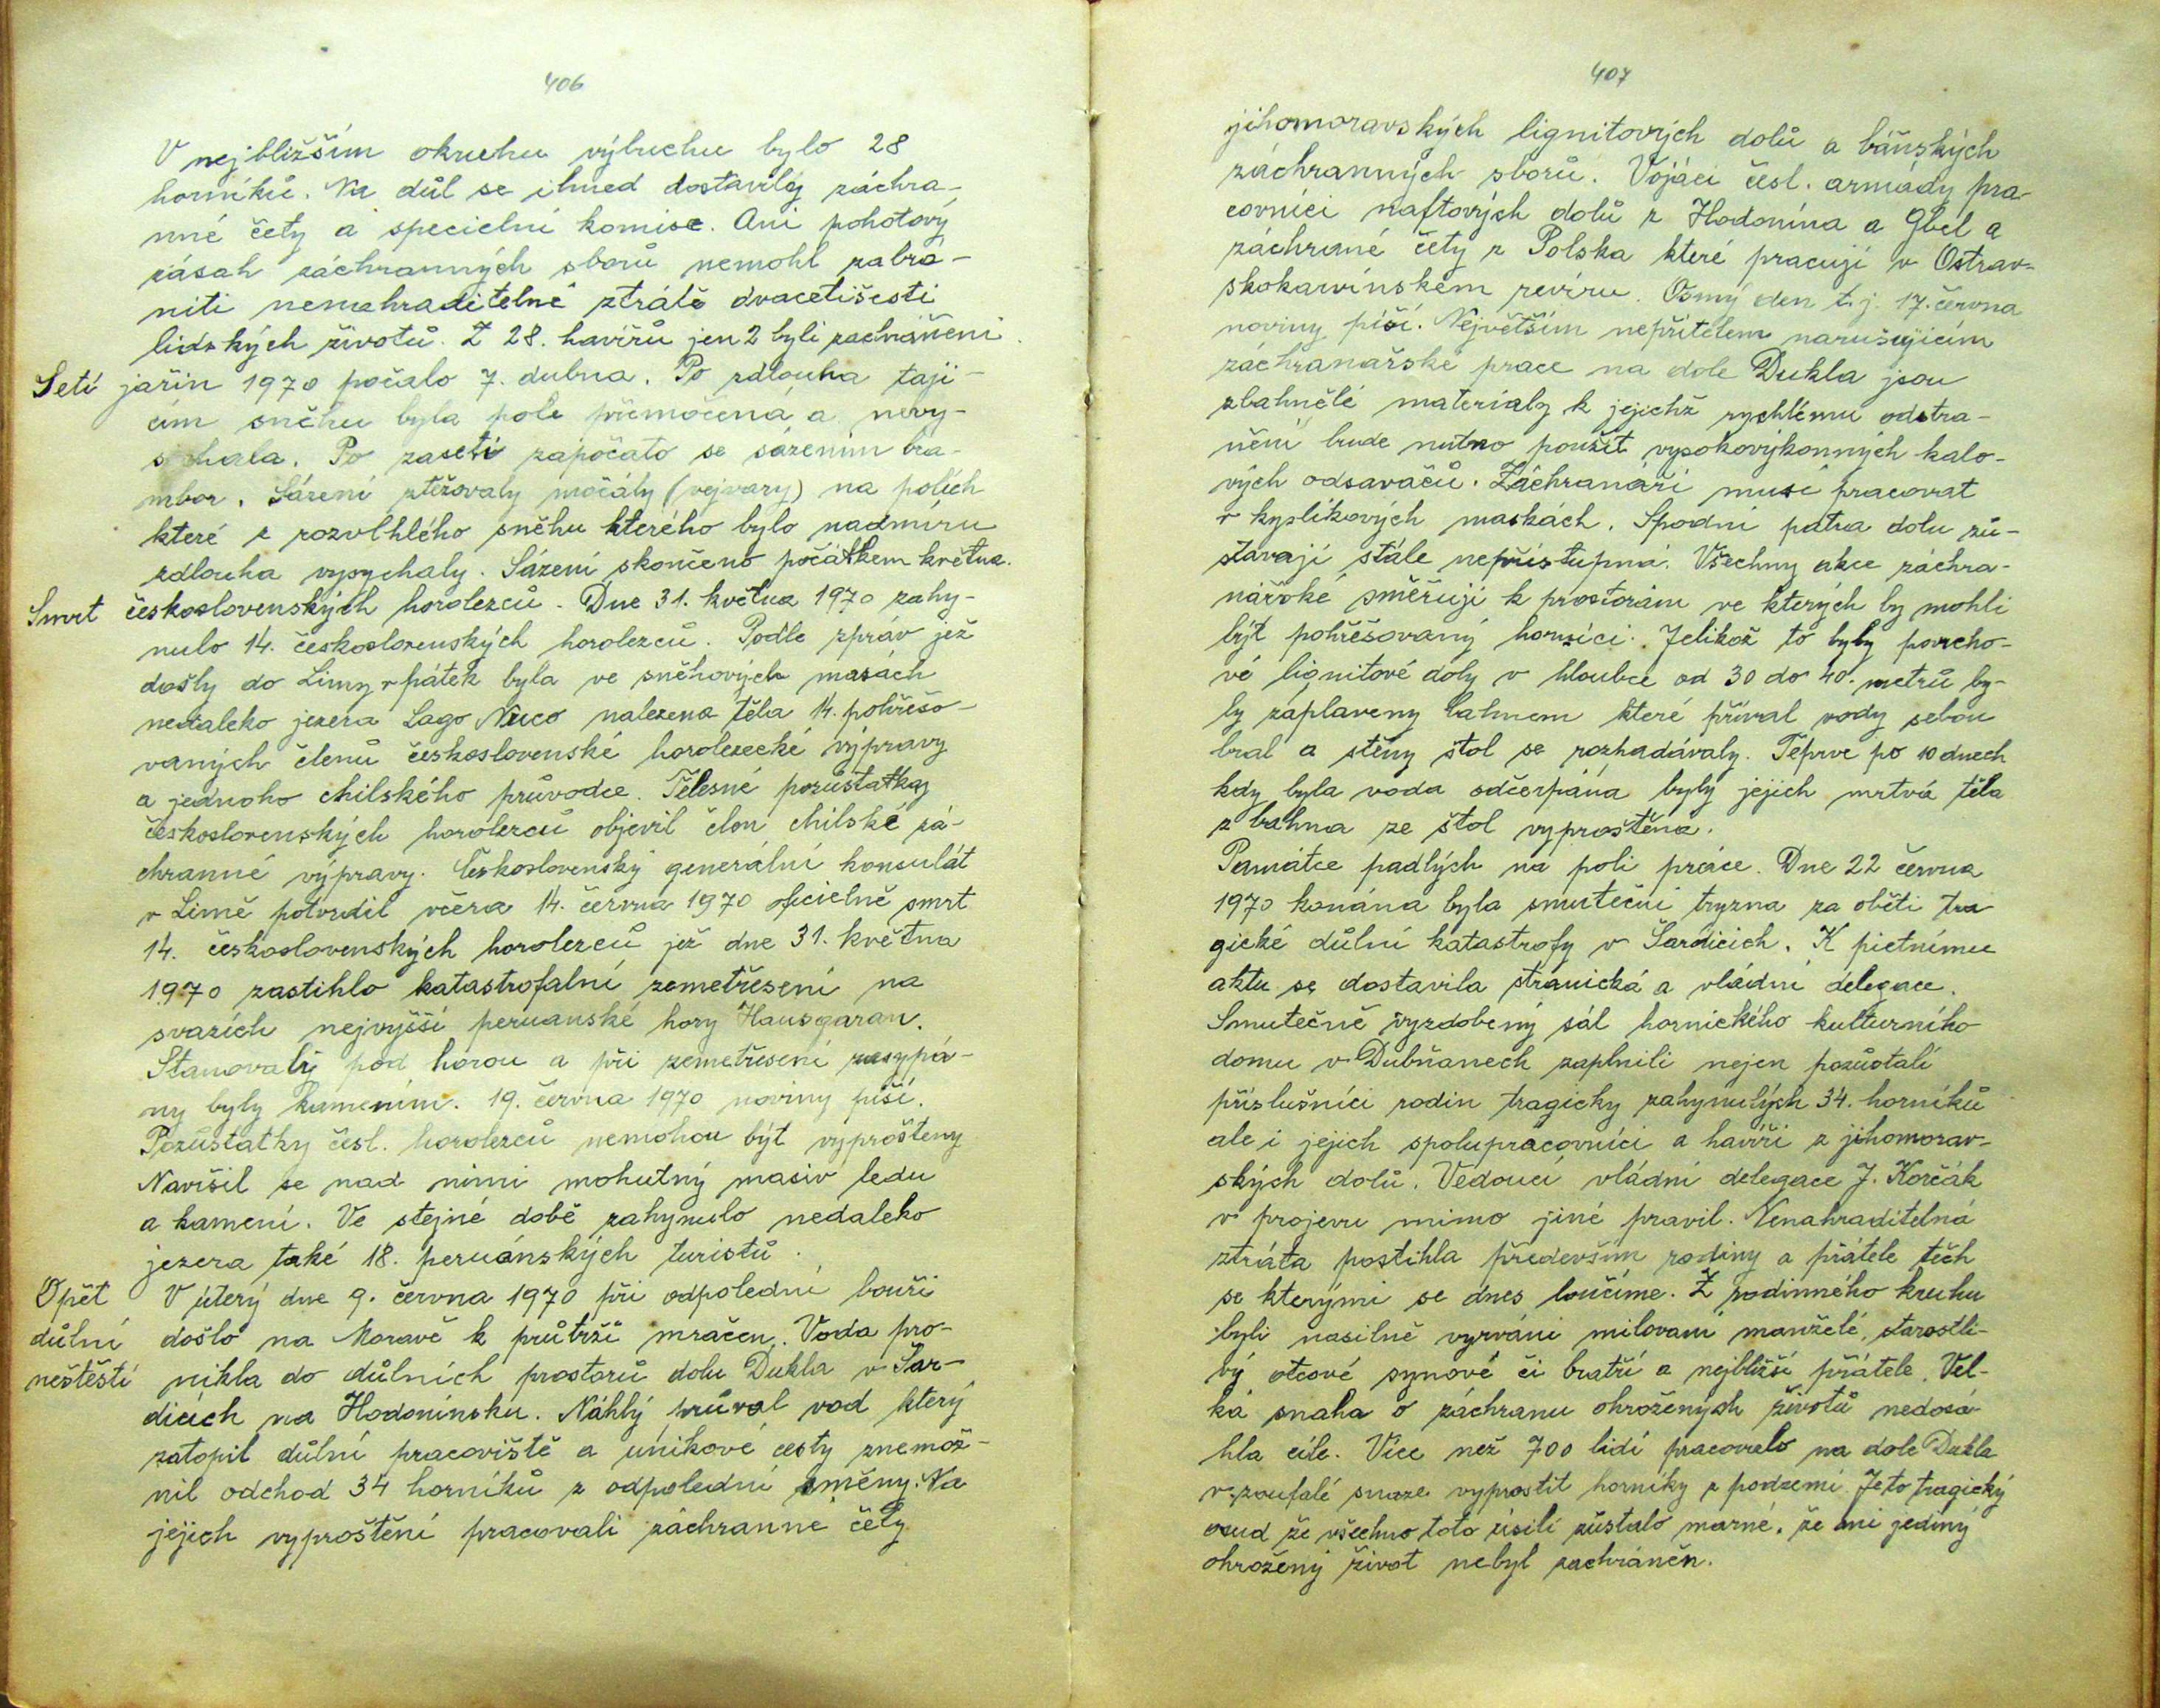 406
V nejbližším okruhu výbuchu bylo 28
horníků. Na důl se ihned dostavily záchra-
nné čety a specielní komise. Ani pohotový
zásah záchranných sborů nemohl zabrá-
niti nenahraditelné ztrátě dvacetišesti
lidských životů. Z 28. havířů jen 2 byli zachráněni.
Setí jařin 1970 počalo 7. dubna. Po zdlouha tají-
cím sněhu byla pole přemočená a nevy-
sychala. Po zasetí započato se sázením bra-
mbor. Sázení ztěžovaly močály (vejvary) na polích
které z rozvlhlého sněhu kterého bylo nadmíru
zdlouha vysychaly. Sázení skončeno počátkem května.
Smrt československých horolezců. Dne 31. května 1970 zahy-
nulo 14. československých horolezců. Podle zpráv jež
došly do Limy v pátek byla ve sněhových masách
nedaleko jezera Lago Nuco nalezena těla 14. pohřešo-
vaných členů československé horolezecké výpravy
a jednoho chilského průvodce. Tělesné pozůstatky
československých horolezců objevil člen chilské zá-
chranné výpravy. Československý generální konsulát
v Limě potvrdil včera 14. června 1970 oficielně smrt
14. československých horolezců jež dne 31. května
1970 zastihlo katastrofalní zemetřesení na
svazích nejvyšší peruanské hory Hausgaran.
Stanovaly pod horou a při zemetřesení zasypá-
ny byly kamením. 19. června 1970 noviny píší.
Pozůstatky čsl. horolezců nemohou být vyproštěny
Navršil se nad nimi mohutný masiv ledu
a kamení. Ve stejné době zahynulo nedaleko
jezera také 18. peruánských turistů.
Opět V úterý dne 9. června 1970 při odpolední bouři
důlní došlo na Moravě k průtrži mračen. Voda pro-
neštěstí nikla do důlních prostorů dolu Dukla v Šar-
dicích na Hodonínsku. Náhlý průval vod který
zatopil důlní pracoviště a únikové cesty znemož-
nil odchod 34 horníků z odpolední směny. Na
jejich vyproštění pracovali záchranné čety
407
jihomoravských lignitových dolů a báňských
záchranných sborů. Vojáci čsl. armády pra-
covníci naftových dolů z Hodonína a Gbel a
záchrané čety z Polska které pracují v Ostrav-
skokarvínském revíru. Osmý den t.j. 17. června
noviny píší. Největším nepřítelem narušujícím
záchranařské prace na dole Dukla jsou
zbahnělé materialy k jejichž rychlému odstra-
nění bude nutno použít vysokovýkonných kalo-
vých odsavačů. Záchranáři musí pracovat
v kyslíkových maskách. Spodní patra dolu zů-
stavají stále nepřístupná. Všechny akce záchra-
nářské směřují k prostorám ve kterých by mohli
být pohřešovaný horníci. Jelikož to byly povrcho-
vé lignitové doly v hloubce od 30 do 40. metrů by-
ly záplaveny bahnem které příval vody sebou
bral a stěny štol se rozhadávaly. Teprve po 10 dnech
kdy byla voda odčerpána byly jejich mrtvá těla
z bahna ze štol vyproštěna.
Památce padlých na poli práce. Dne 22 června
1970 konána byla smuteční tryzna za oběti tra
gické důlní katastrofy v Šardicích. K pietnímu
aktu se dostavila stranická a vládní delegace.
Smutečně vyzdobený sál hornického kulturního
domu v Dubňanech zaplnili nejen pozůstalí
příslušníci rodin tragicky zahynulých 34. horníků
ale i jejich spolupracovníci a havíři z jihomorav-
ských dolů. Vedoucí vládní delegace J. Korčák
v projevu mimo jiné pravil. Nenahraditelná
ztráta postihla především rodiny a přátele těch
se kterými se dnes loučíme. Z rodinného kruhu
byli nasilně vyrváni milovaní manželé, starostli-
vý otcové synové či bratří a nejbližší přátele. Vel-
ká snaha o záchranu ohrožených životů nedosá
hla cíle. Více než 700 lidí pracovalo na dole Dukla
v zoufalé snaze vyprostit horníky z podzemí. Je to tragický
osud že všechno toto úsilí zůstalo marné, že ani jediný
ohrožený život nebyl zachráněn.